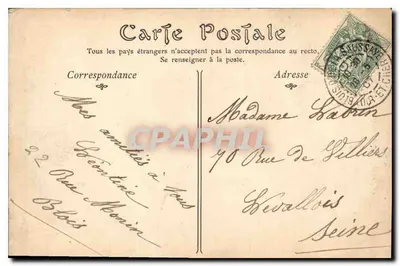 Carte Postale
Tous les pays étrangers n'acceptent pas la correspondance au recto.
Se renseigner à la poste.
Correspondance
Adresse
Mes amitiés à tous
Léontine
22 Rue Monin
Blois
Madame Labrun
70 Rue de Villiers
Levallois
Seine
Cartepostale